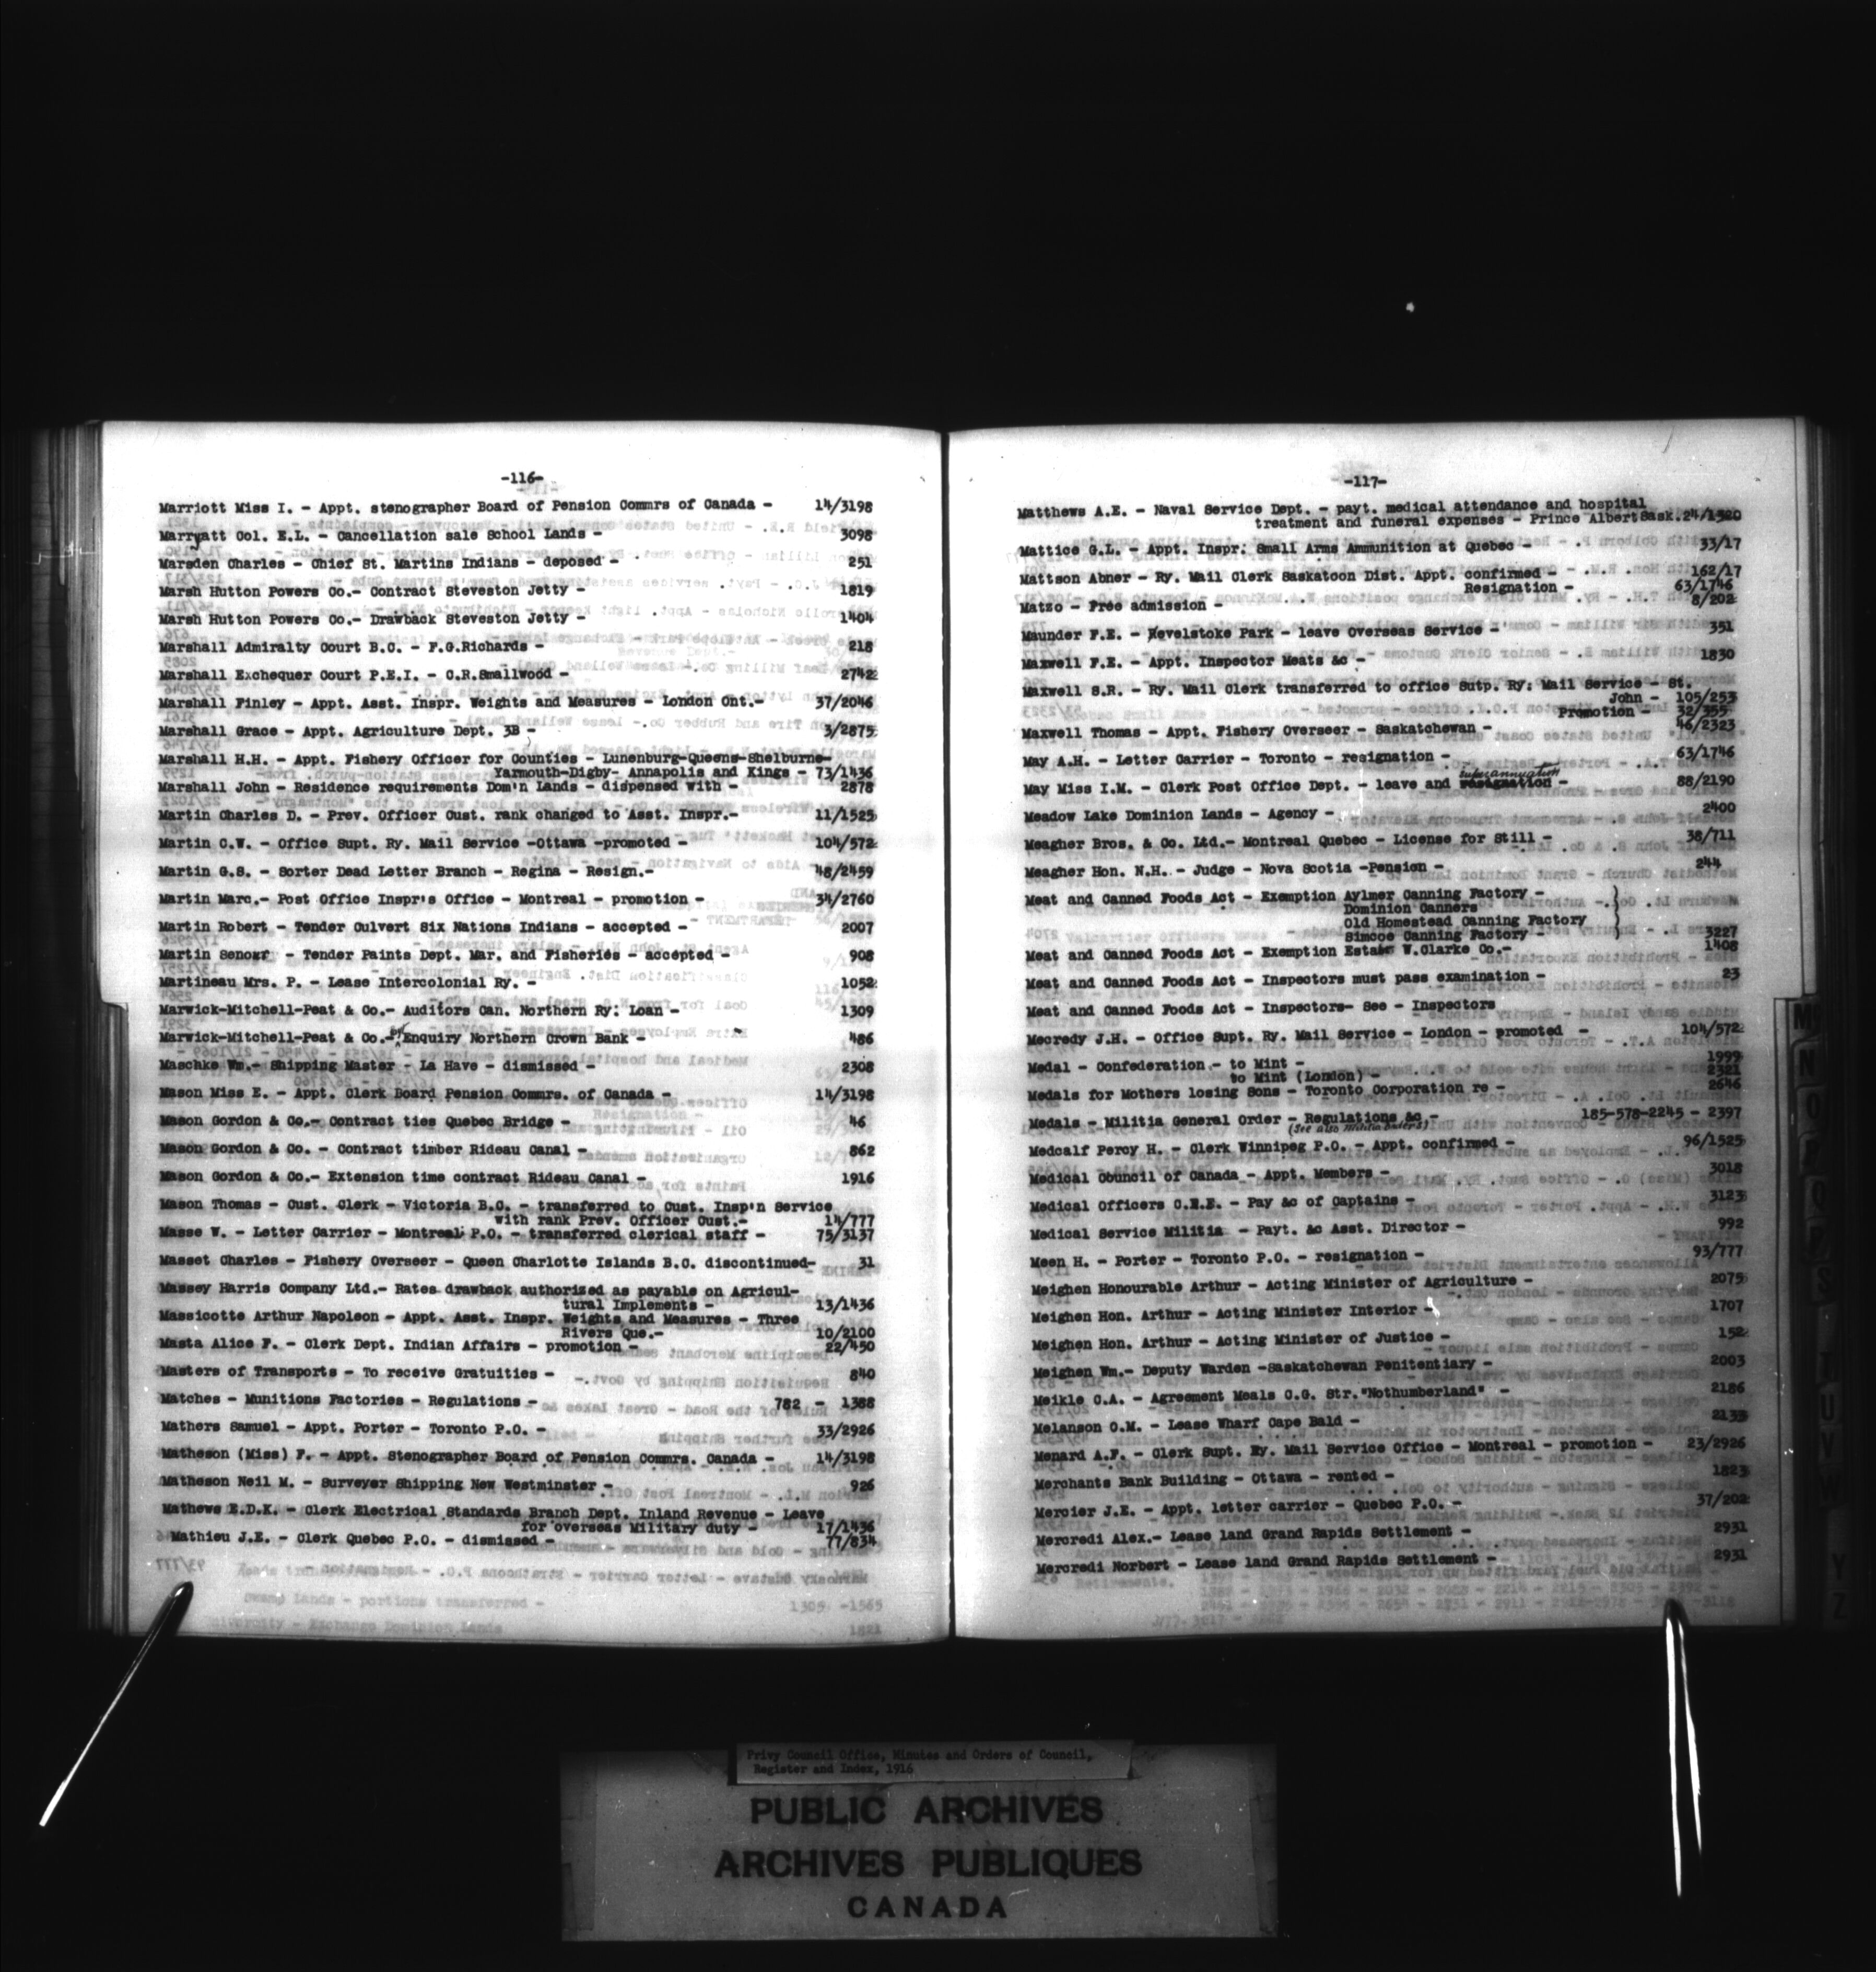 -116-
Marriott Miss I. - Appt. stenographer Board of Pension Commrs of Canada - 14/3198
Marryatt Col. E.L. - Cancellation sale School Lands - 3098
Marsden Charles - Chief St. Martins Indians - deposed - 251
Marsh Hutton Powers Co.- Contract Steveston Jetty - 1819
Marsh Hutton Powers Co.- Drawback Steveston Jetty - 1404
Marshall Admiralty Court B.C. - F.G.Richards - 218
Marshall Exchequer Court P.E.I. - C.R.Smallwood - 2742
Marshall Finley - Appt. Asst. Inspr. Weights and Measures - London Ont.- 37/2046
Marshall Grace - Appt. Agriculture Dept. 3B - 3/2875
Marshall H.H. - Appt. Fishery Officer for Counties - Lunenburg-Queens-Shelburne-
Yarmouth-Digby- Annapolis and Kings - 73/1436
Marshall John - Residence requirements Dom'n Lands - dispensed with - 2878
Martin Charles D. - Prev. Officer Cust. rank changed to Asst. Inspr.- 11/1525
Martin C.W. - Office Supt. Ry. Mail Service -Ottawa -promoted - 104/572
Martin G.S. - Sorter Dead Letter Branch - Regina - Resign.- 48/2459
Martin Marc.- Post Office Inspr's Office - Montreal - promotion - 34/2760
Martin Robert - Tender Culvert Six Nations Indians - accepted - 2007
Martin Senour - Tender Paints Dept. Mar. and Fisheries - accepted - 908
Martineau Mrs. P. - Lease Intercolonial Ry. - 1052
Marwick-Mitchell-Peat & Co.- Auditors Can. Northern Ry: Loan - 1309
Marwick-Mitchell-Peat & Co.- Enquiry Northern Crown Bank - 486
Maschke Wm.- Shipping Master - La Have - dismissed - 2308
Mason Miss E. - Appt. Clerk Board Pension Commrs. of Canada - 14/3198
Mason Gordon & Co.- Contract ties Quebec Bridge - 46
Mason Gordon & Co. - Contract timber Rideau Canal - 862
Mason Gordon & Co.- Extension time contract Rideau Canal - 1916
Mason Thomas - Cust. Clerk - Victoria B.C. - transferred to Cust. Insp'n Service
with rank Prev. Officer Cust.- 14/777
Masse W. - Letter Carrier - Montreal P.O. - transferred clerical staff - 75/3137
Masset Charles - Fishery Overseer - Queen Charlotte Islands B.C. discontinued- 31
Massey Harris Company Ltd.- Rates drawback authorized as payable on Agricul-
tural Implements - 13/1436
Massicotte Arthur Napoleon - Appt. Asst. Inspr. Weights and Measures - Three
Rivers Que.- 10/2100
Masta Alice F. - Clerk Dept. Indian Affairs - promotion - 22/450
Masters of Transports - To receive Gratuities - 840
Matches - Munitions Factories - Regulations - 782 - 1388
Mathers Samuel - Appt. Porter - Toronto P.O. - 33/2926
Matheson (Miss) F. - Appt. Stenographer Board of Pension Commrs. Canada - 14/3198
Matheson Neil M. - Surveyer Shipping New Westminster - 926
Mathews E.D.K. - Clerk Electrical Standards Branch Dept. Inland Revenue - Leave
for overseas Military duty - 17/1436
Mathieu J.E. - Clerk Quebec P.O. - dismissed - 77/834
-117-
Matthews A.E. - Naval Service Dept. - payt. medical attendance and hospital
treatment and funeral expenses - Prince Albert Sask. 24/1320
Mattice G.L. - Appt. Inspr. Small Arms Ammunition at Quebec - 33/17
Mattson Abner - Ry. Mail Clerk Saskatoon Dist. Appt. confirmed - 162/17
Resignation - 63/1746
Matzo - Free admission - 8/202
Maunder F.E. - Revelstoke Park - leave Overseas Service - 351
Maxwell F.E. - Appt. Inspector Meats &c - 1830
Maxwell S.R. - Ry. Mail Clerk transferred to office Sutp. Ry: Mail Service - St.
John - 105/253
Promotion - 32/355
Maxwell Thomas - Appt. Fishery Overseer - Saskatchewan - 46/2323
May A.H. - Letter Carrier - Toronto - resignation - 63/1746
superannuation
May Miss I.M. - Clerk Post Office Dept. - leave and resignation - 88/2190
Meadow Lake Dominion Lands - Agency - 2400
Meagher Bros. & Co. Ltd.- Montreal Quebec - License for Still - 38/711
Meagher Hon. N.H. - Judge - Nova Scotia -Pension - 244
Meat and Canned Foods Act - Exemption Aylmer Canning Factory -
Dominion Canners
Old Homestead Canning Factory
Simcoe Canning Factory - 3227
Meat and Canned Foods Act - Exemption Estate W.Clarke Co.- 1408
Meat and Canned Foods Act - Inspectors must pass examination - 23
Meat and Canned Foods Act - Inspectors- See - Inspectors
Mecredy J.H. - Office Supt. Ry. Mail Service - London - promoted - 104/572
Medal - Confederation - to Mint - 1999
to Mint (London) - 2321
Medals for Mothers losing Sons - Toronto Corporation re - 2646
Medals - Militia General Order - Regulations &c - 185-578-2245 - 2397
(See also Militia Orders)
Medcalf Percy H. - Clerk Winnipeg P.O. - Appt. confirmed - 96/1525
Medical Council of Canada - Appt. Members - 3018
Medical Officers C.E.E. - Pay &c of Captains - 3123
Medical Service Militia - Payt. &c Asst. Director - 992
Meen H. - Porter - Toronto P.O. - resignation - 93/777
Meighen Honourable Arthur - Acting Minister of Agriculture - 2075
Meighen Hon. Arthur - Acting Minister Interior - 1707
Meighen Hon. Arthur - Acting Minister of Justice - 152
Meighen Wm.- Deputy Warden -Saskatchewan Penitentiary - 2003
Meikle C.A. - Agreement Meals C.G. Str."Nothumberland" - 2186
Melanson O.M. - Lease Wharf Cape Bald - 2133
Menard A.F. - Clerk Supt. Ry. Mail Service Office - Montreal - promotion - 23/2926
Merchants Bank Building - Ottawa - rented - 1823
Mercier J.E. - Appt. letter carrier - Quebec P.O. - 37/202
Mercredi Alex.- Lease land Grand Rapids Settlement - 2931
Mercredi Norbert - Lease land Grand Rapids Settlement - 2931
M
N
O
P
Q
R
S
T
U
V
YZ
Privy Council Office, Minutes and Orders of Council,
Register and Index, 1916
PUBLIC ARCHIVES
ARCHIVES PUBLIQUES
CANADA